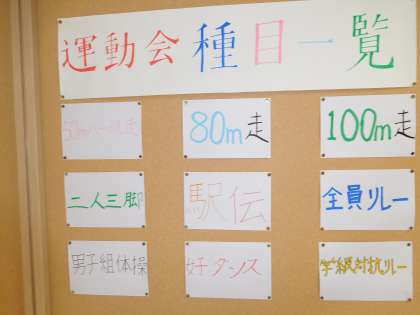 運動会種目一覧
80m走
100m走
二人三脚
駅伝
全員リレー
男子組体操
女子ダンス
学級対抗リレー